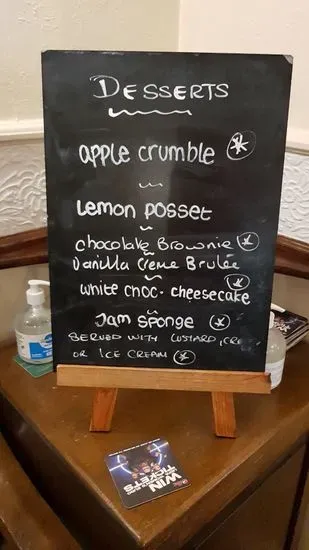 DESSERTS
apple crumble *
Lemon posset
chocolate Brownie *
Vanilla Crème Brulée
white choc. cheesecake *
Jam Sponge *
SERVED WITH CUSTARD, CRE
OR ICE CREAM *
WIN
TICKETS